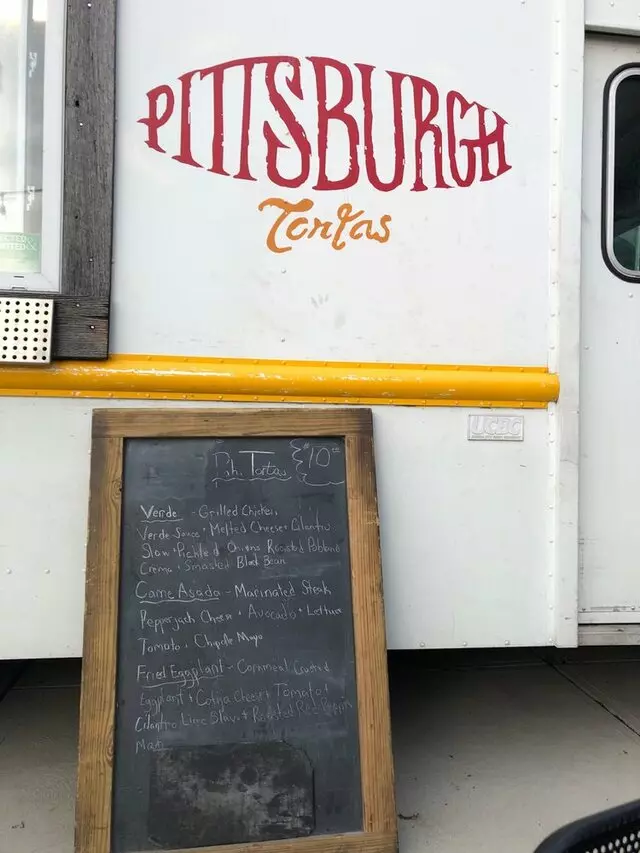 PITTSBURGH
Tortas
UCBC
Pgh. Tortas $10
Verde - Grilled Chicken
Verde Sauce + Melted Cheese + Cilantro
Slaw + Pickled Onions Roasted Poblano
Crema + Smashed Black Bean
Carne Asada - Marinated Steak
Pepperjack Cheese + Avocado + Lettuce
Tomato + Chipotle Mayo
Fried Eggplant - Cornmeal Crusted
Eggplant + Cotija Cheese + Tomato +
Cilantro Lime Slaw + Roasted Red Pepper
Mayo